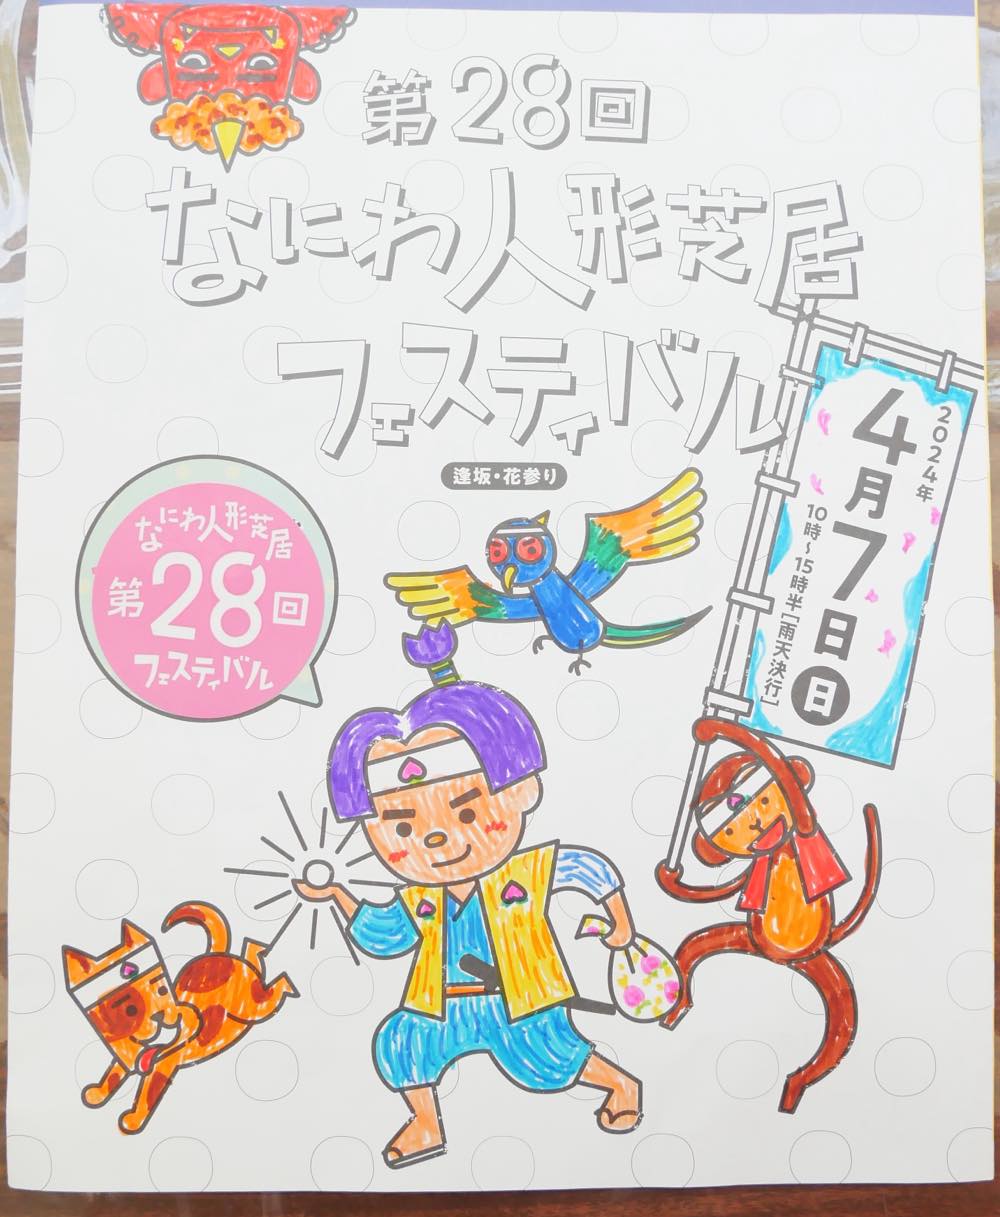 第28回
なにわ人形芝居
フェスティバル
逢坂・花参り
2024年
4月7日日
10時～15時半[雨天決行]
なにわ人形芝居
第28回
フェスティバル